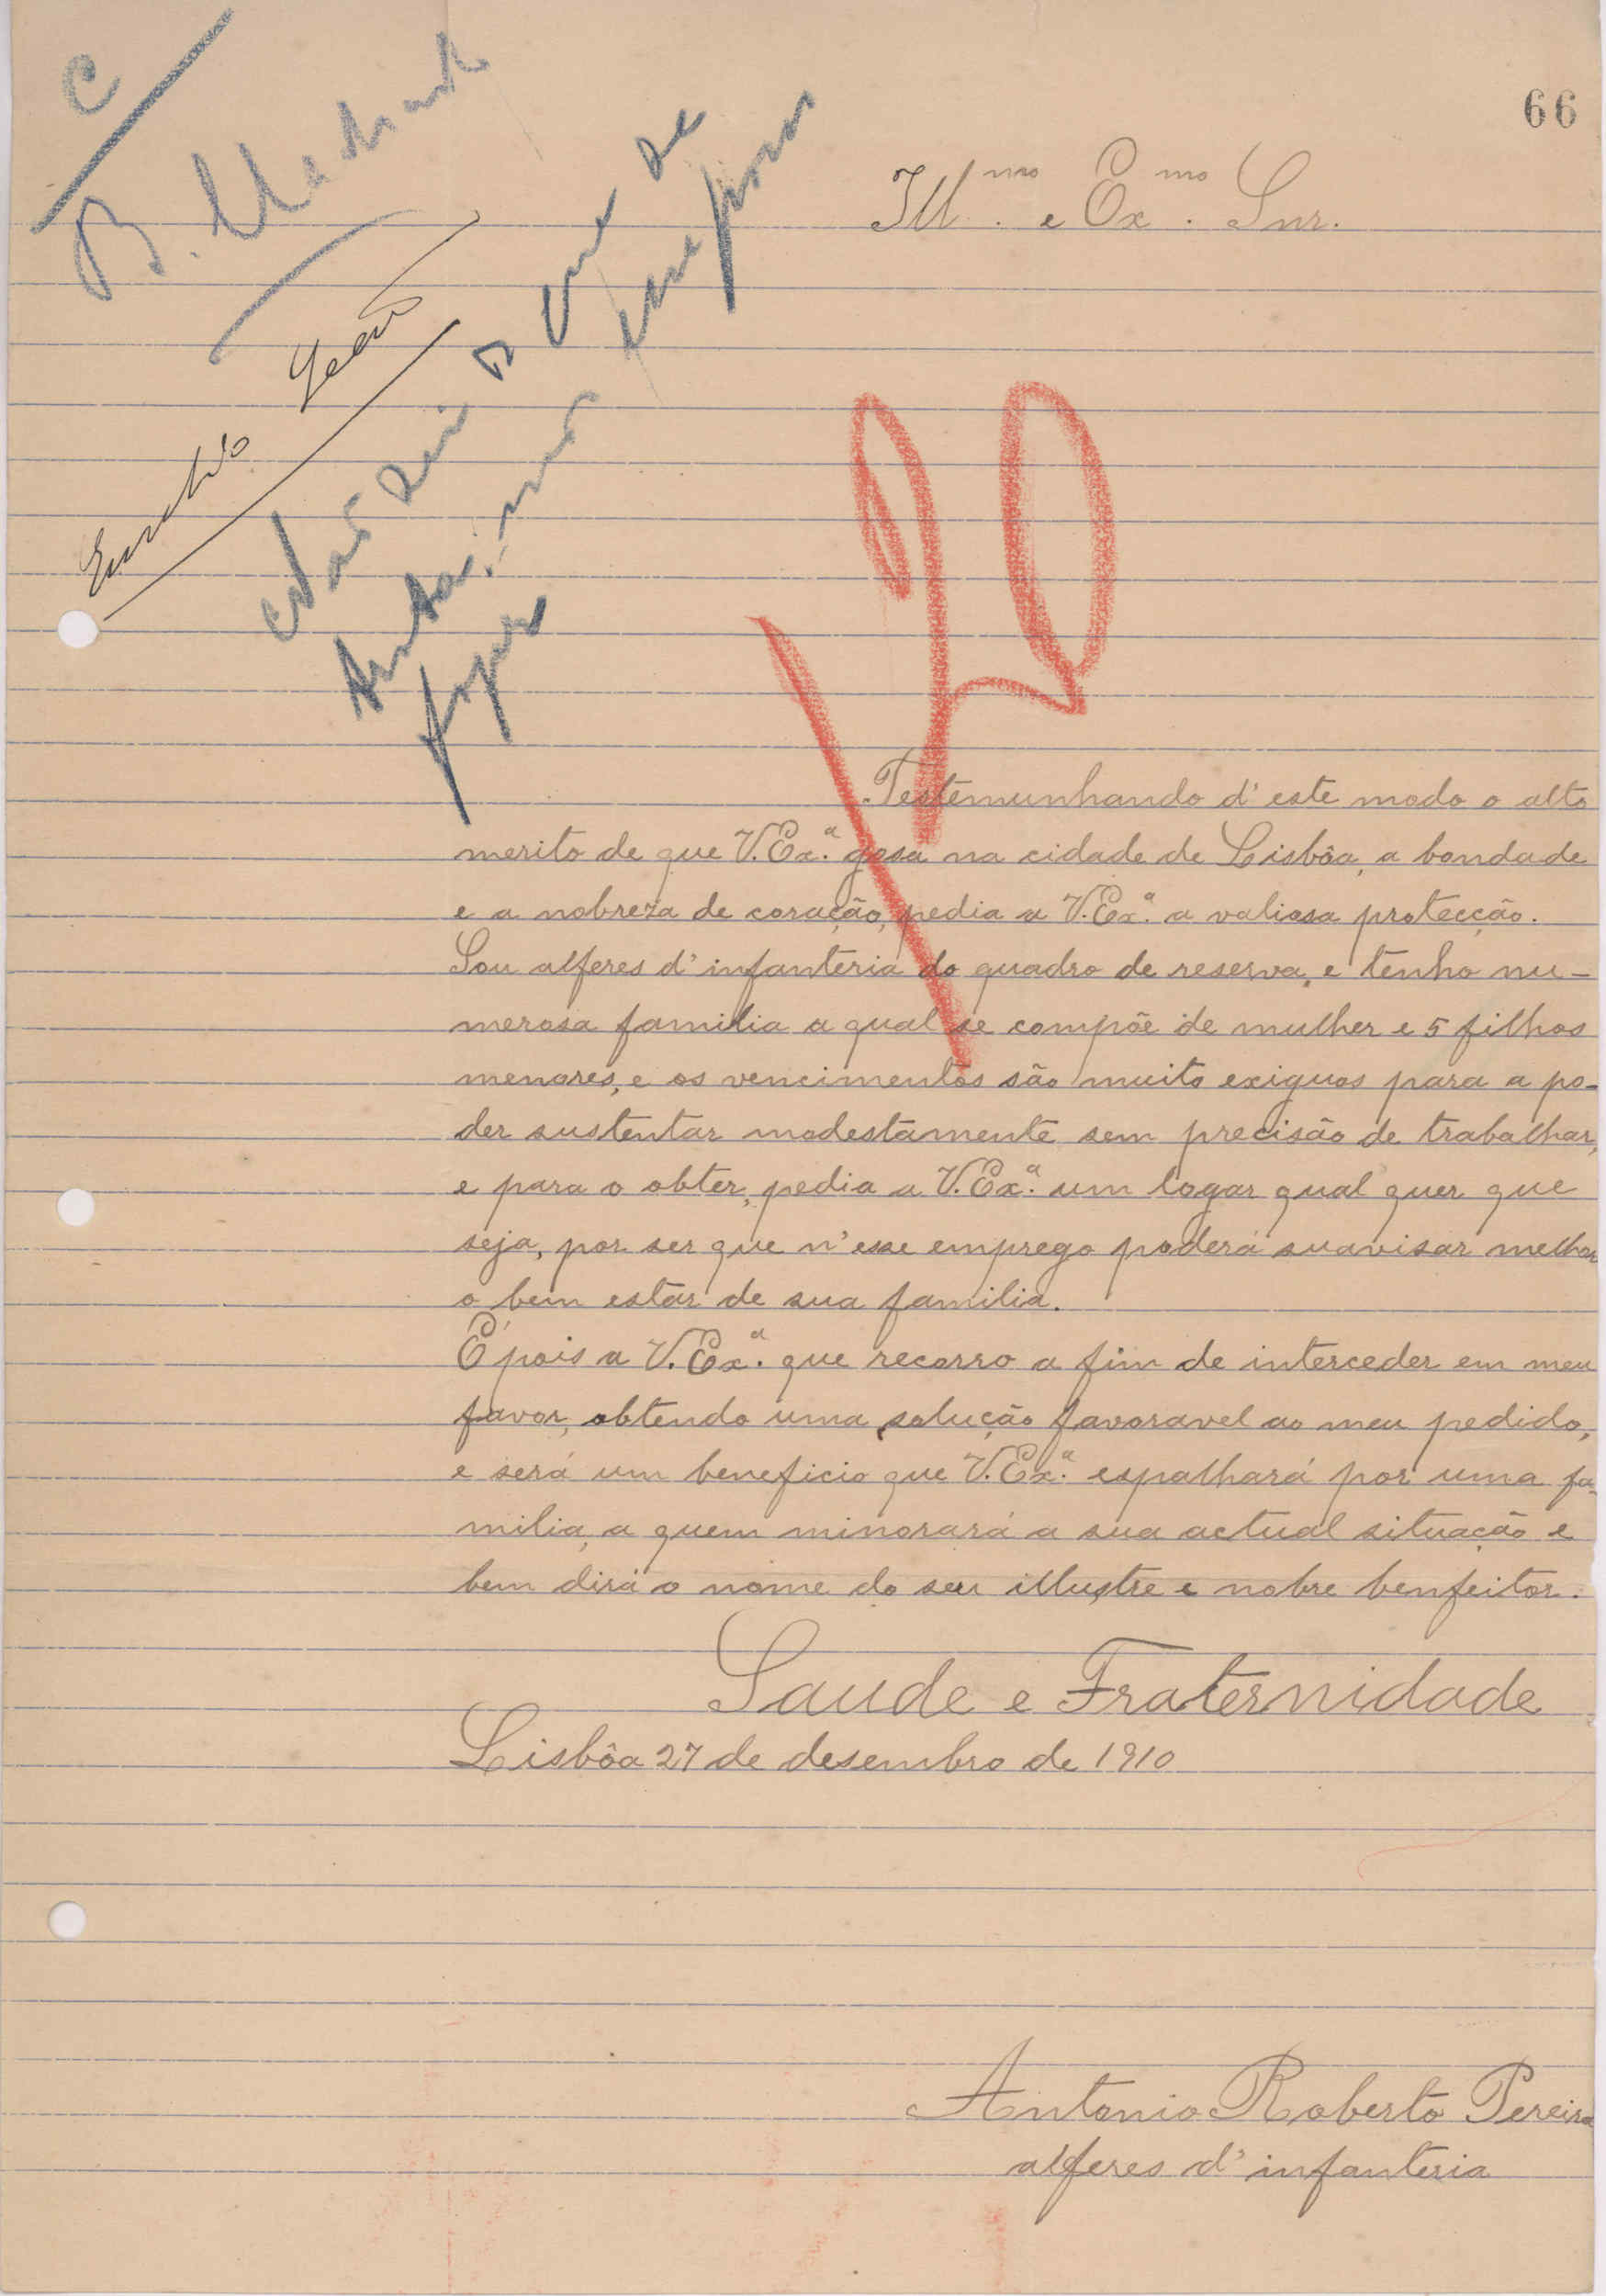 66
C
B. Machado
Ill.mo e Ex.mo Snr.
Testemunhando d'este modo o alto
merito de que V. Ex.a gosa na cidade de Lisbôa, a bondade
e a nobreza de coração, pedia a V. Ex.a a valiosa protecção.
Sou alferes d'infanteria do quadro de reserva, e tenho nu-
merosa familia a qual se compõe de mulher e 5 filhos
menores, e os vencimentos são muito exiguos para a po-
der sustentar modestamente sem precisão de trabalhar,
e para o obter, pedia a V. Ex.a um logar qual quer que
seja, por ser que n'esse emprego poderá suavisar melhor
o bem estar de sua familia.
É pois a V. Ex.a que recorro a fim de interceder em meu
favor, obtendo uma solução favoravel ao meu pedido,
e será um beneficio que V. Ex.a espalhará por uma fa-
milia, a quem minorará a sua actual situação e
bem dirá o nome do seu illustre e nobre benfeitor.
Saude e Fraternidade
Lisbôa 27 de desembro de 1910
Antonio Roberto Pereira
alferes d'infanteria